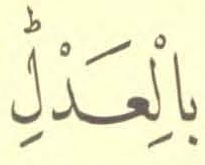 بِالْعَدْلِؕ